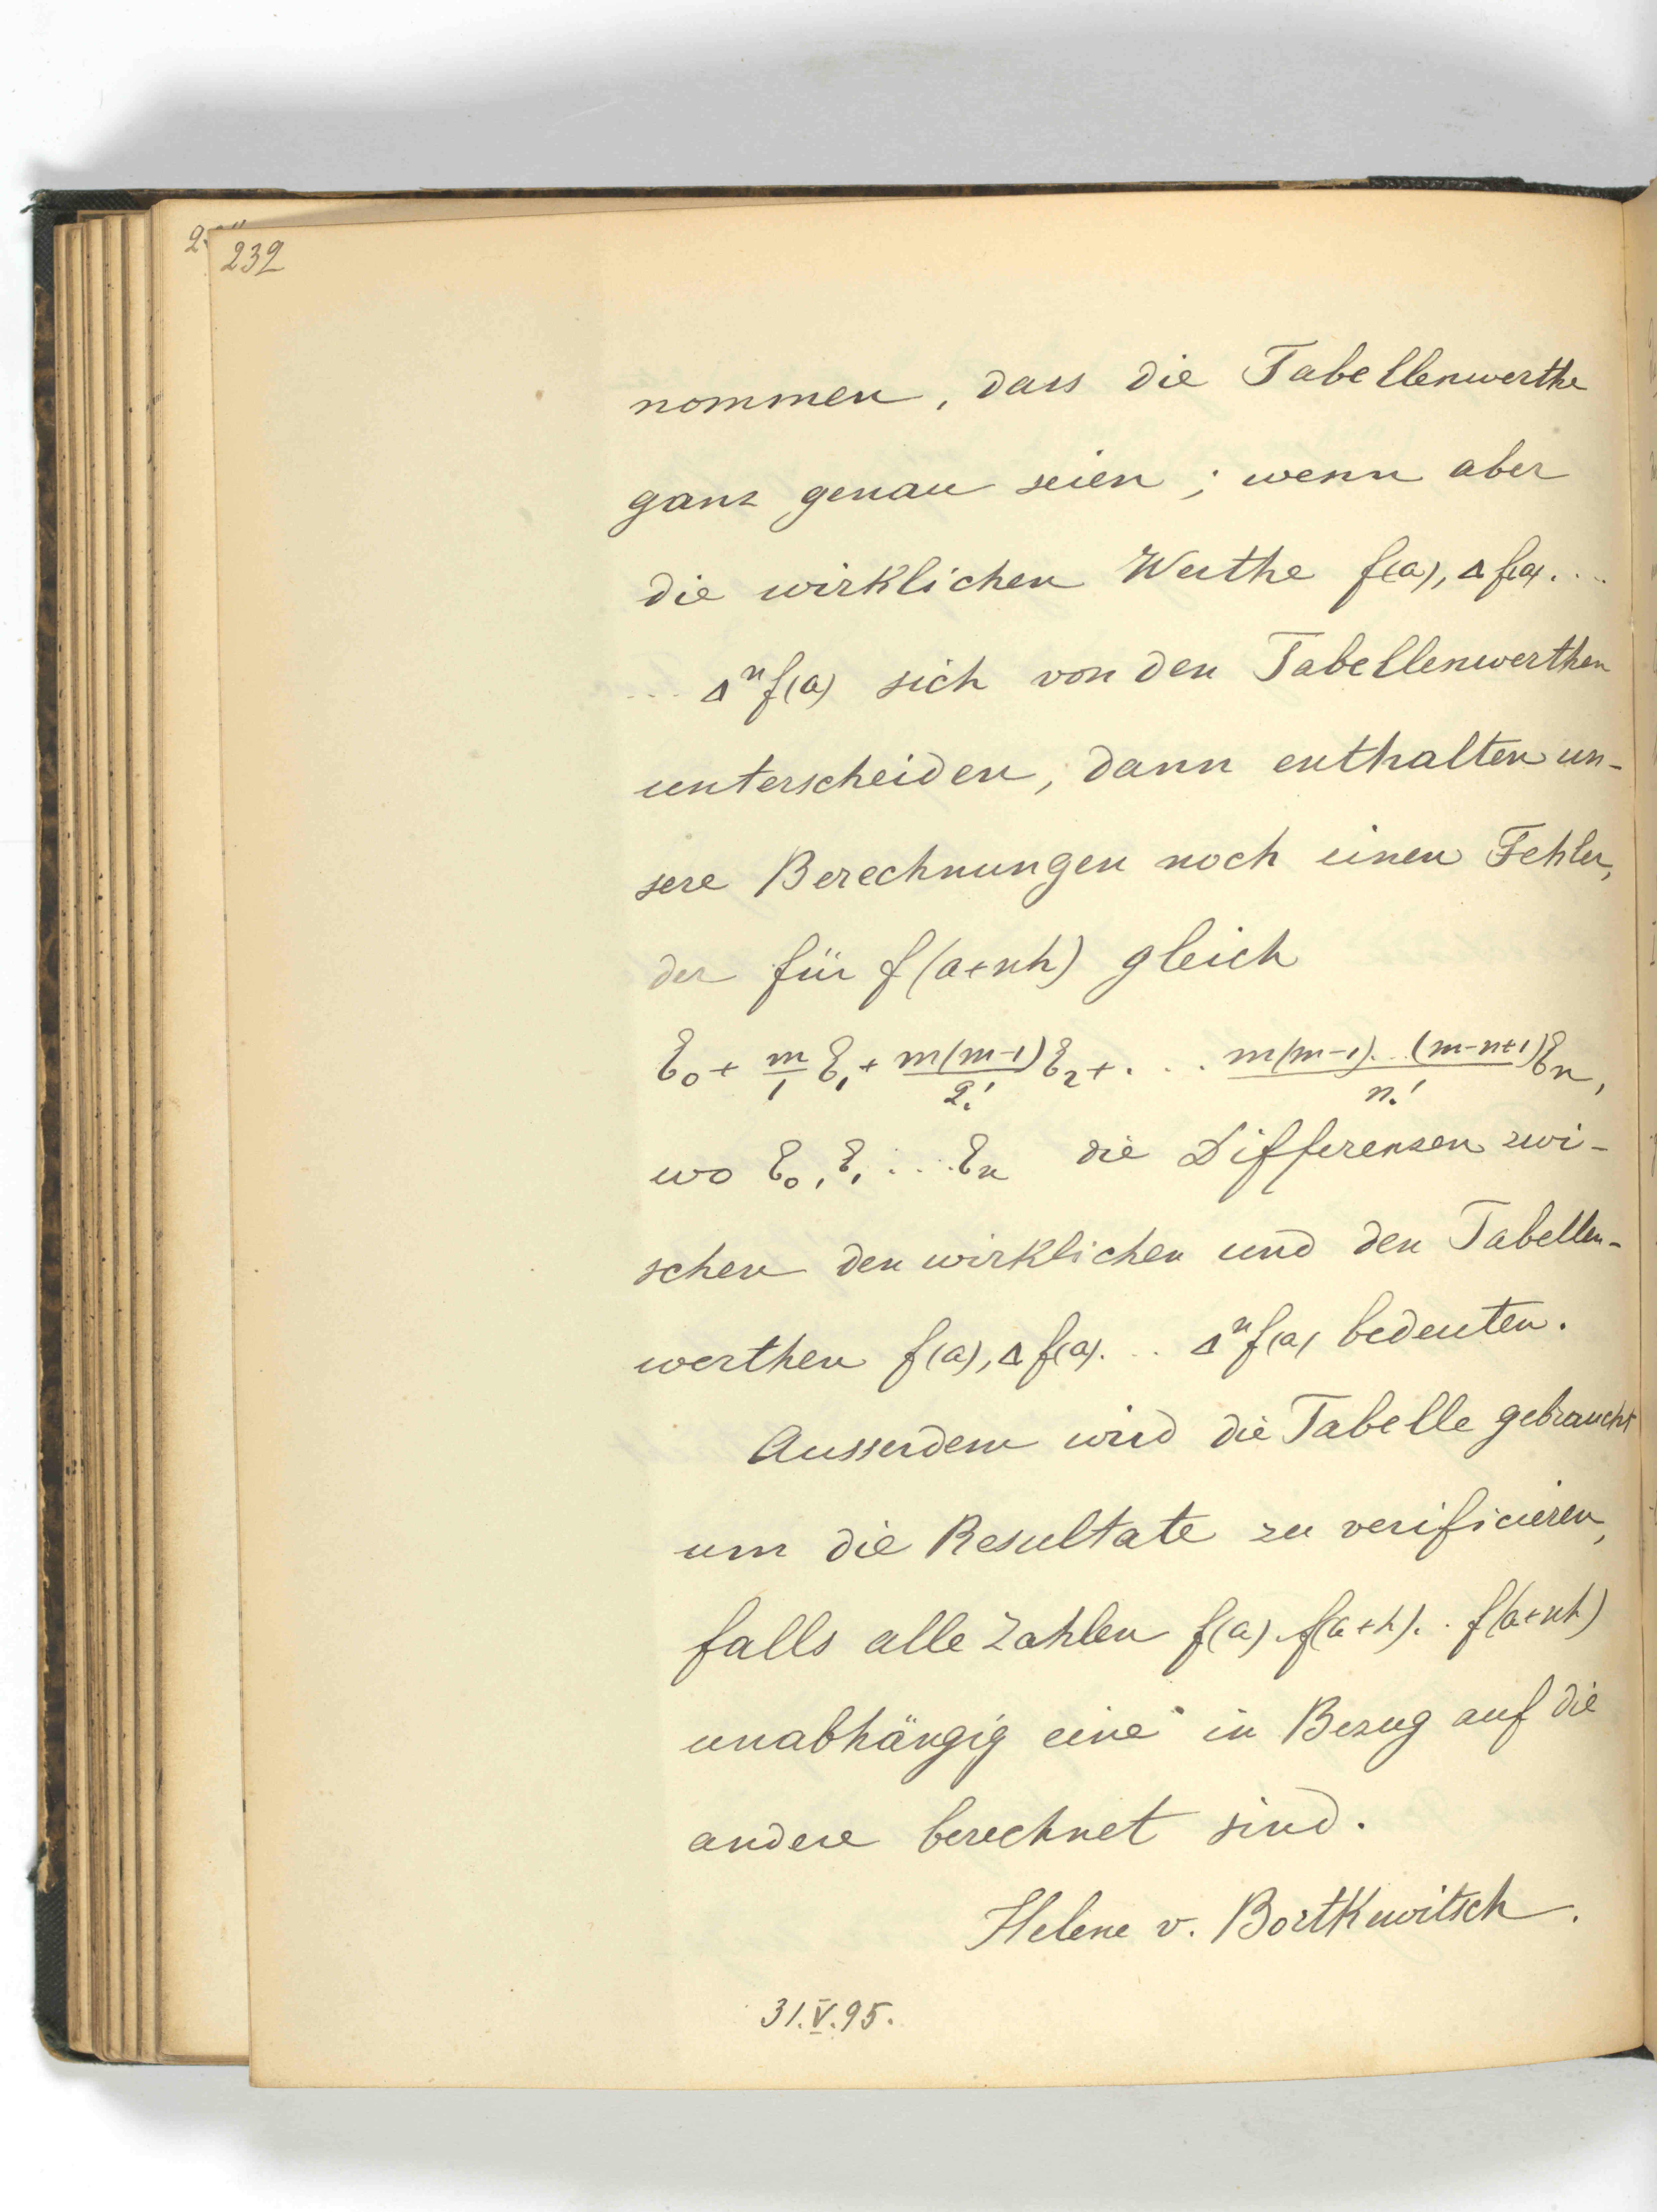 232
nommen, dass die Tabellenwerthe
ganz genau seien; wenn aber
die wirklichen Werthe f(a), Δf(a)....
... Δⁿf(a) sich von den Tabellenwerthen
unterscheiden, dann enthalten un-
sere Berechnungen noch einen Fehler,
der für f(a+nh) gleich
ℰ₀ + m/1 ℰ₁ + m(m-1)/2! ℰ₂ + .... m(m-1)...(m-n+1)/n! ℰₙ,
wo ℰ₀, ℰ₁ .... ℰₙ die Differenzen zwi-
schen den wirklichen und den Tabellen-
werthen f(a), Δf(a)... Δⁿf(a) bedeuten.
Ausserdem wird die Tabelle gebraucht
um die Resultate zu verificieren,
falls alle Zahlen f(a) f(a+h)... f(a+nh)
unabhängig eine in Bezug auf die
andere berechnet sind.
Helene v. Bortkewitsch.
31.V.95.